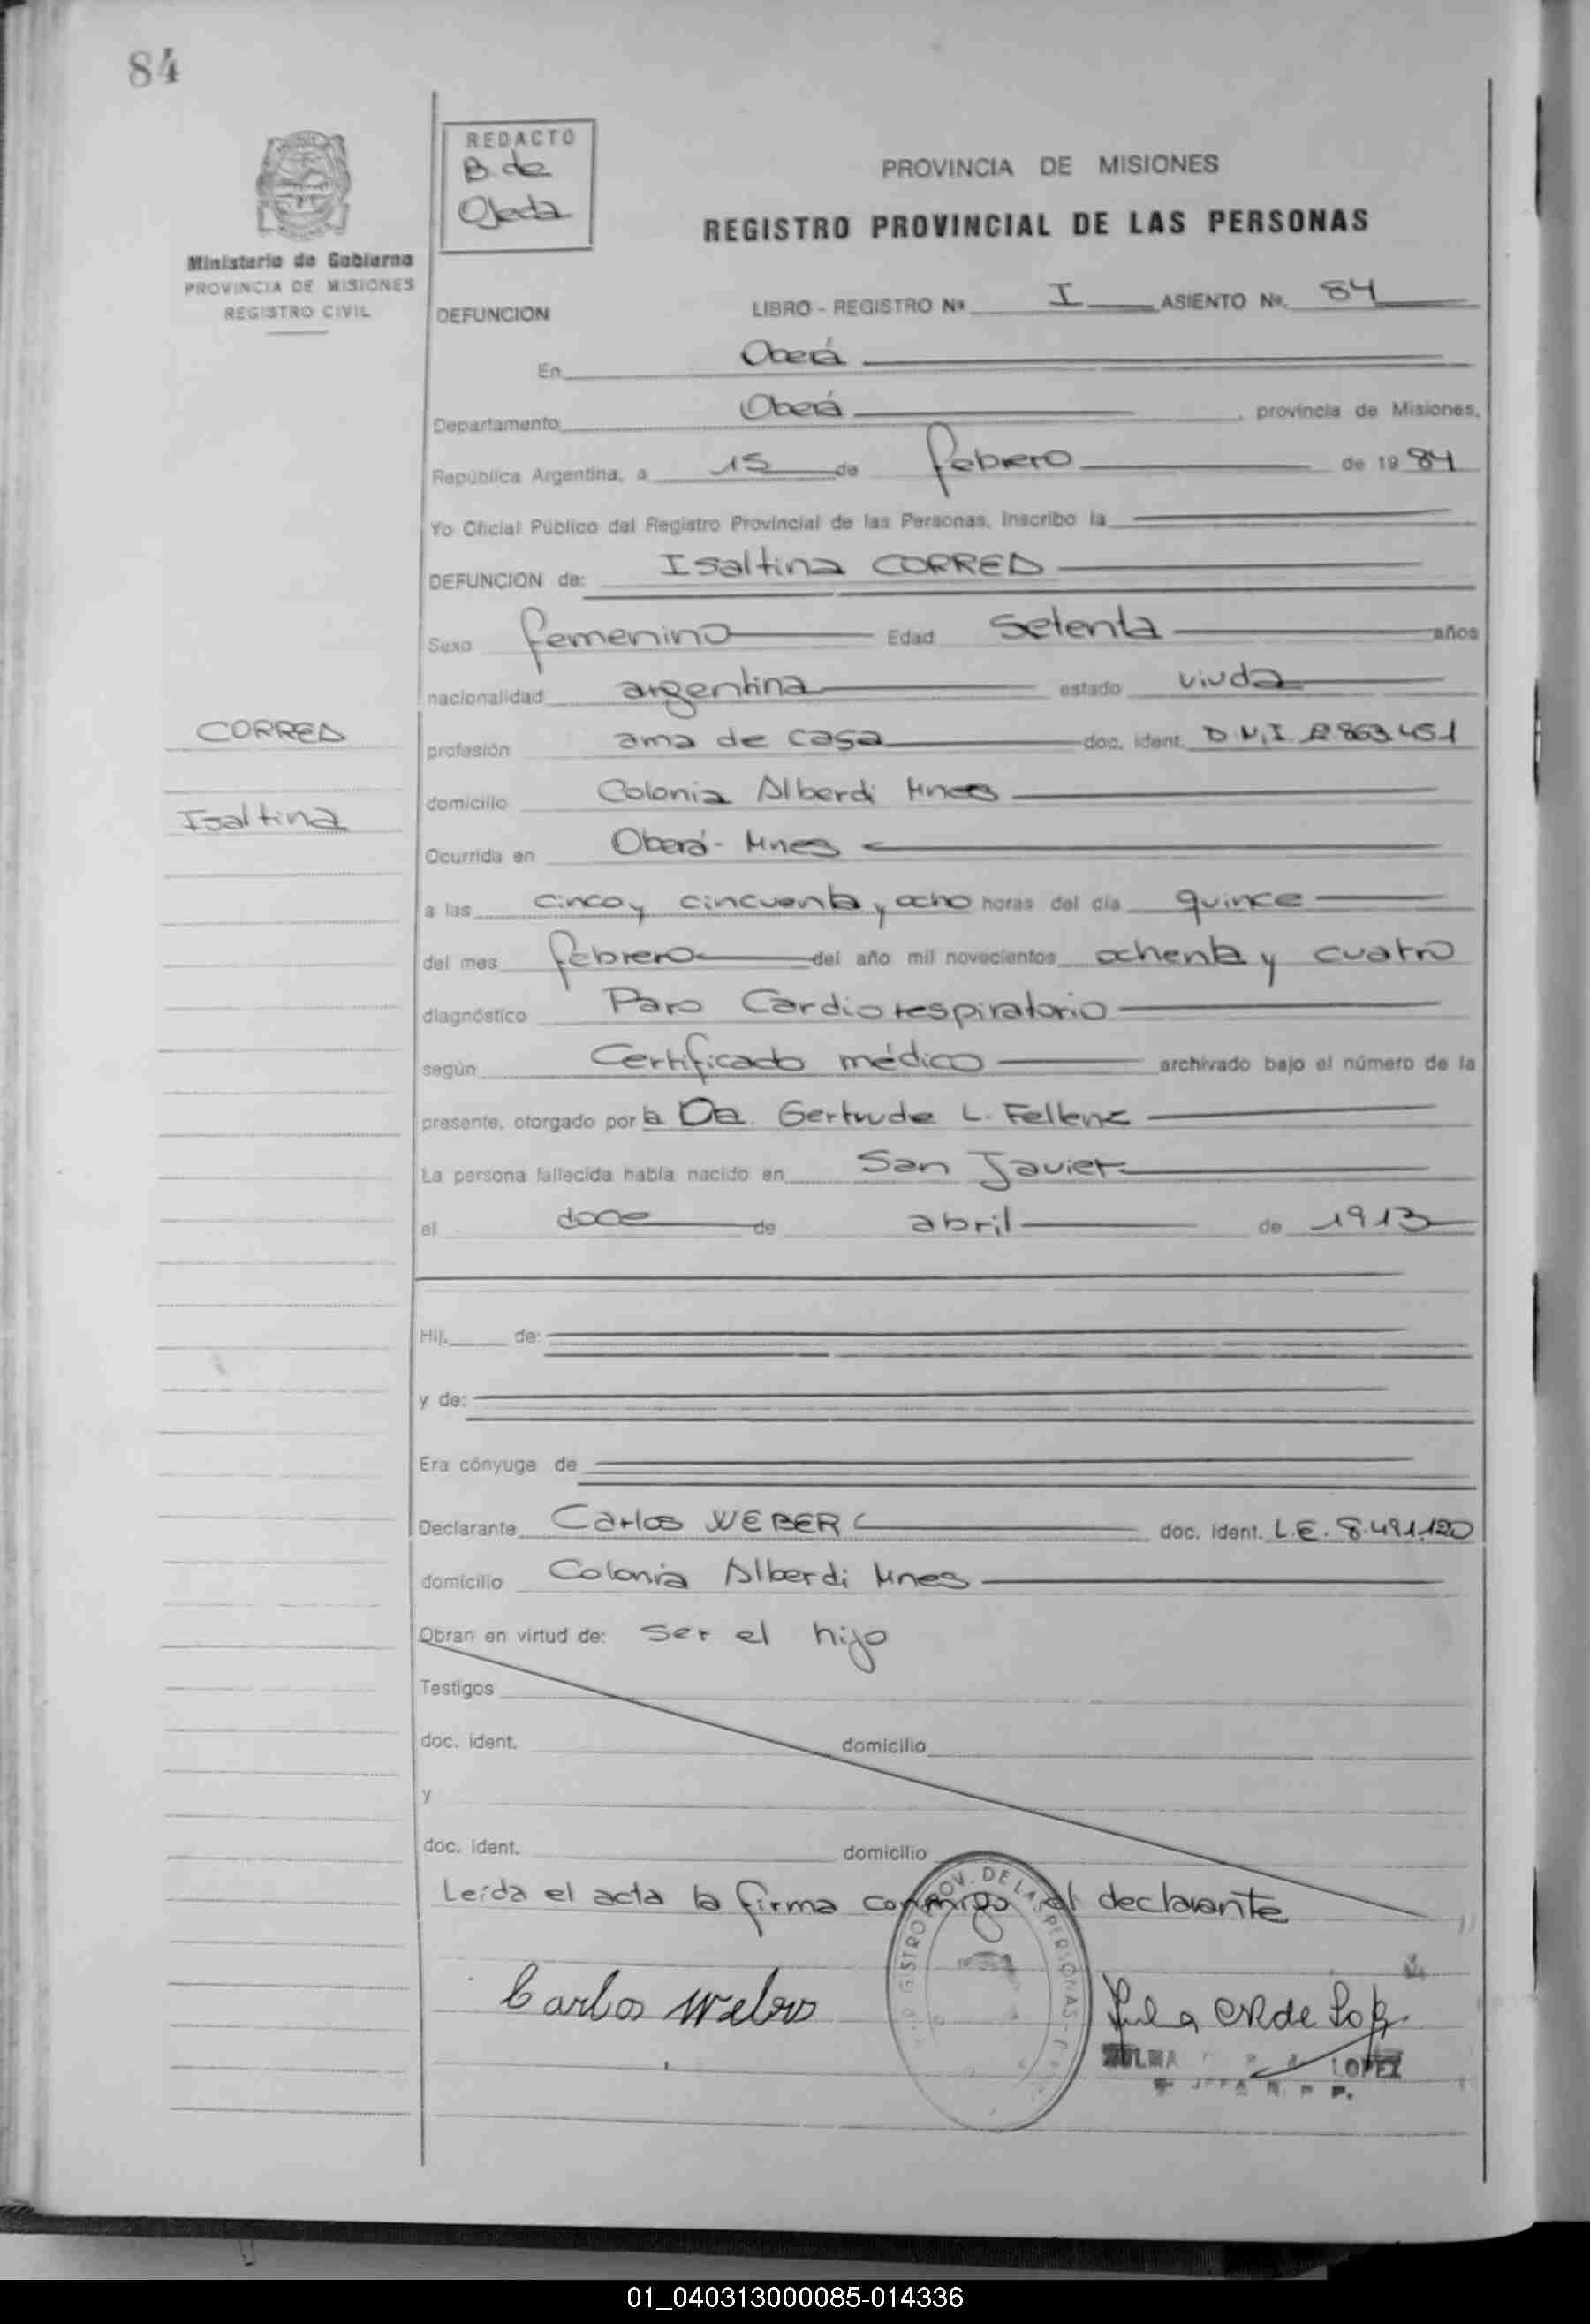 84
REDACTO
B. de
Ojeda
Ministerio de Gobierno
PROVINCIA DE MISIONES
REGISTRO CIVIL
PROVINCIA DE MISIONES
REGISTRO PROVINCIAL DE LAS PERSONAS
DEFUNCION LIBRO - REGISTRO Nº I ASIENTO Nº. 84
En Oberá
Departamento Oberá, provincia de Misiones,
República Argentina, a 15 de febrero de 1984
Yo Oficial Público del Registro Provincial de las Personas, inscribo la
DEFUNCION de: Isaltina CORREA
Sexo femenino Edad setenta años
nacionalidad argentina estado viuda
CORREA
profesión ama de casa doc. ident. D.N.I 863.451
domicilio Colonia Alberdi Mnes
Isaltina
Ocurrida en Oberá - Mnes
a las cinco y cincuenta y ocho horas del día quince
del mes febrero del año mil novecientos ochenta y cuatro
diagnóstico Paro Cardiorespiratorio
según Certificado médico archivado bajo el número de la
presente, otorgado por la Da. Gertrude L. Fellenz
La persona fallecida había nacido en San Javier
el doce de abril de 1913
Hij. de:
y de:
Era cónyuge de
Declarante Carlos WEBER doc. ident. L.E. 8.491.120
domicilio Colonia Alberdi Mnes
Obran en virtud de: ser el hijo
Testigos
doc. ident. domicilio
y
doc. ident. domicilio
Leída el acta la firma conmigo el declarante
REGISTRO PROV. DE LAS PERSONAS
Carlos Weber
LOPEZ
01_040313000085-014336